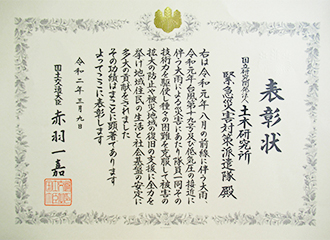 表彰状
国立研究開発法人土木研究所
緊急災害対策派遣隊 殿
右は令和元年八月の前線に伴う大雨、
令和元年台風第十九号及び低気圧の接近に
伴う大雨による災害にあたり隊員一同その
技術力を駆使し種々の困難を克服して被害の
拡大の防止や被災地域の復旧の支援に全力を
挙げ地域住民の生活と社会基盤の安定に
多大の貢献をされました
その功績はまことに顕著であります
よってここに表彰します
令和二年三月九日
国土交通大臣 赤羽一嘉